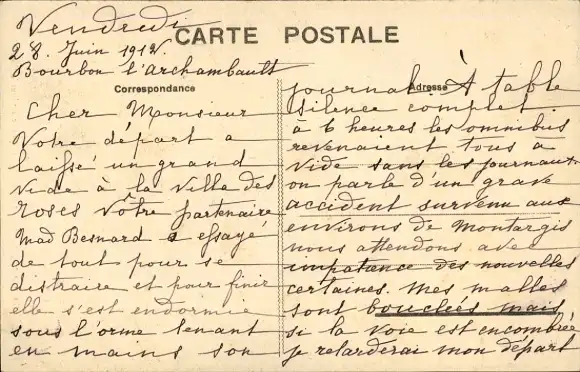 Vendredi
28. Juin 1912.
Bourbon l'Archambault
CARTE POSTALE
Correspondance
Cher Monsieur
Votre départ a
laissé un grand
vide à la ville des
roses Vôtre partenaire
Mad Besnard a essayé
de tout pour se
distraire et pour finir
elle s'est endormie
sous l'orme tenant
en mains son
Adresse
journal. À table
silence complet.
à 6 heures les omnibus
revenaient tous a
vide sans les journaux
on parle d'un grave
accident survenu aux
environs de Montargis
nous attendons avec
impatience des nouvelles
certaines. Mes malles
sont bouclées mais
si la voie est encombrée
je retarderai mon départ